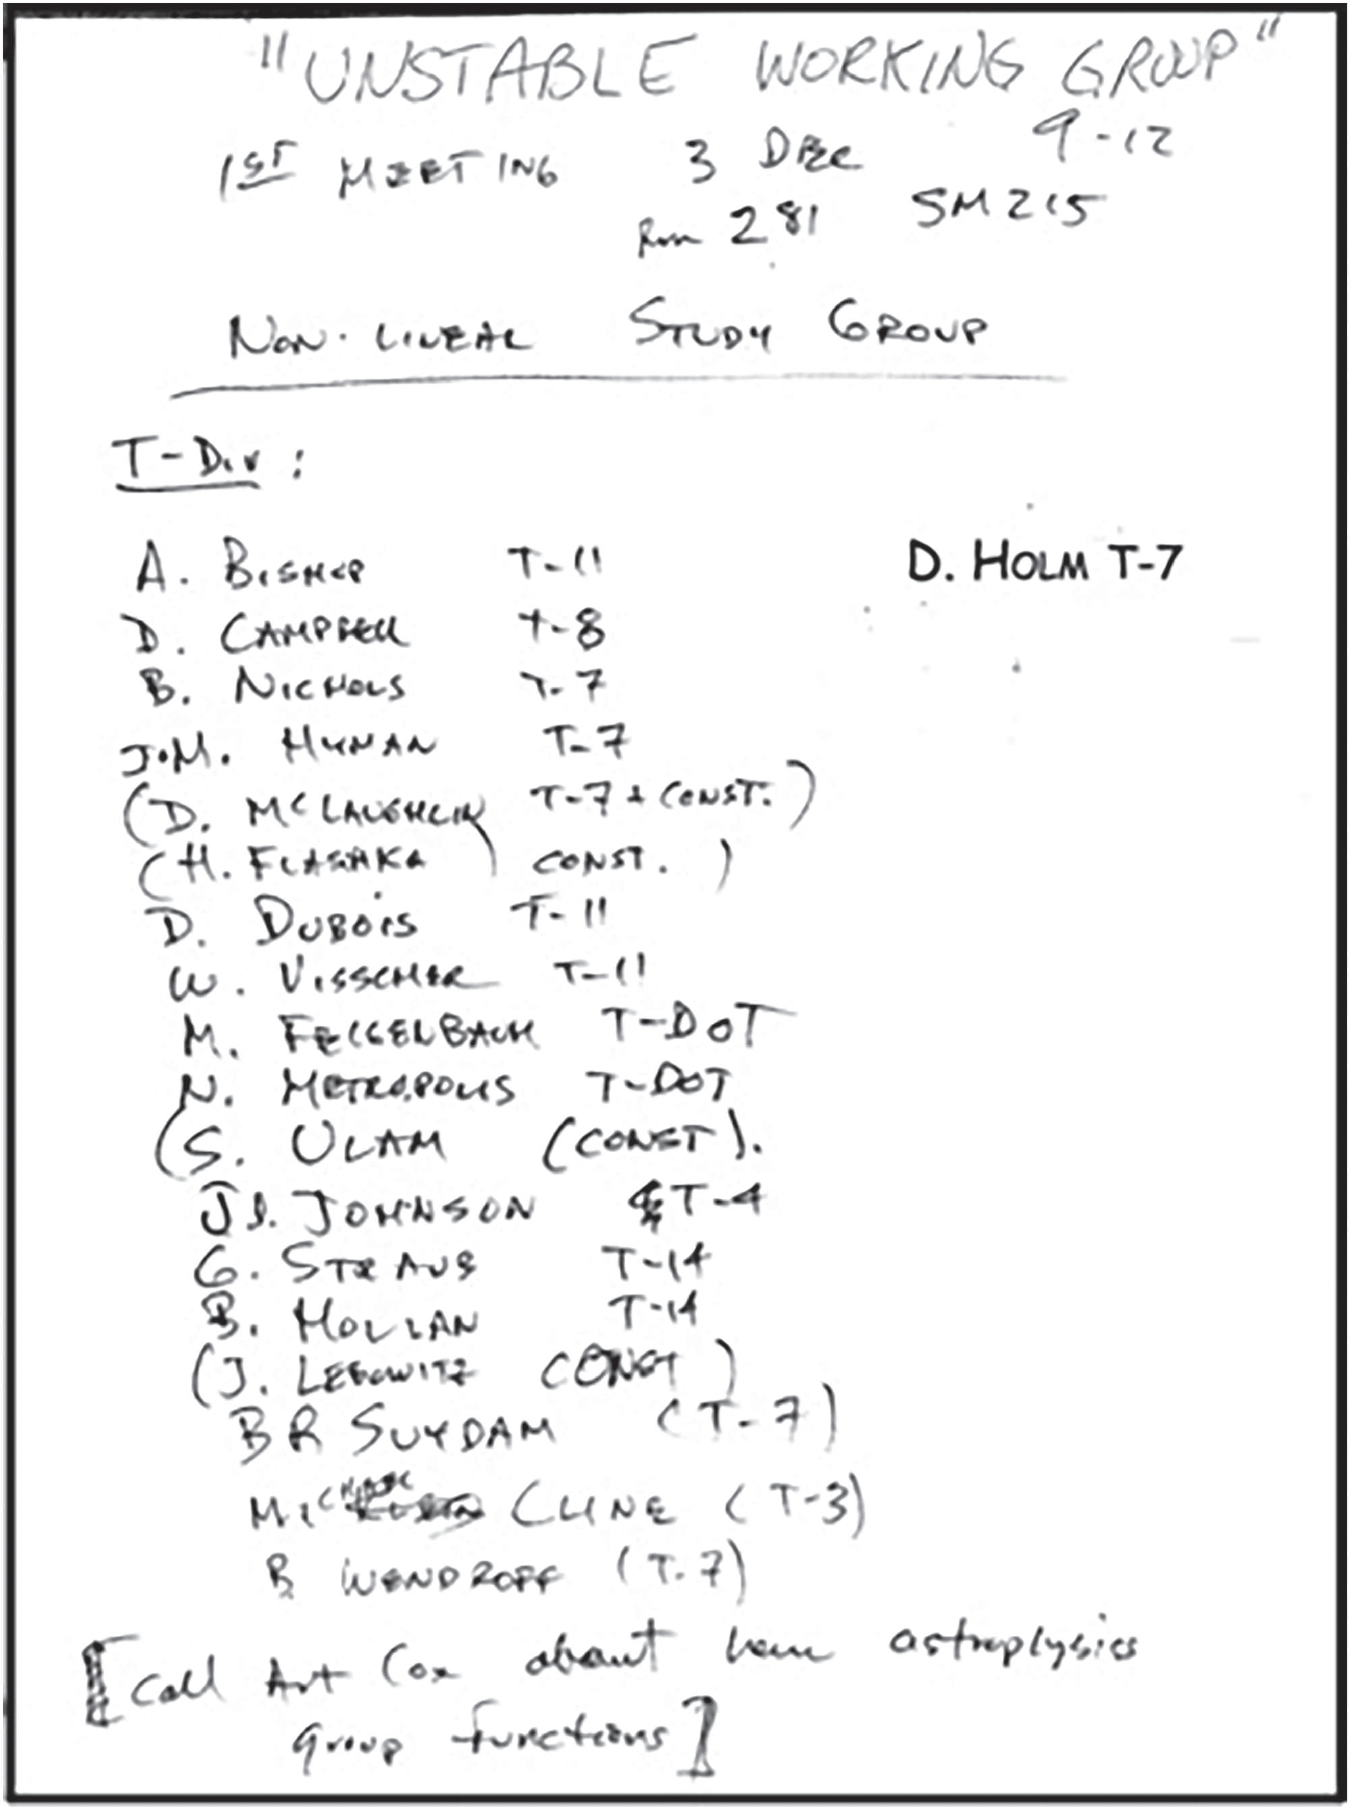 "UNSTABLE WORKING GROUP"
1ST MEETING 3 DEC 9-12
Rm 281 SM 215
NON-LINEAR STUDY GROUP
T-DIV:
A. BISHOP T-11 D. HOLM T-7
D. CAMPBELL T-8
B. NICHOLS T-7
J.M. HYMAN T-7
(D. MCLAUGHLIN T-7 + CONST.)
(H. FLASHKA) CONST.)
D. DUBOIS T-11
W. VISSCHER T-11
M. FEIGENBAUM T-DOT
N. METROPOLIS T-DOT
(S. ULAM (CONST).
J.D. JOHNSON T-4
G. STRAUB T-14
B. HOLIAN T-14
(J. LEBOWITZ CONST)
B R SUYDAM (T-7)
MICHAEL CLINE (T-3)
B WENDROFF (T-7)
[Call Art Cox about how astrophysics
group functions]